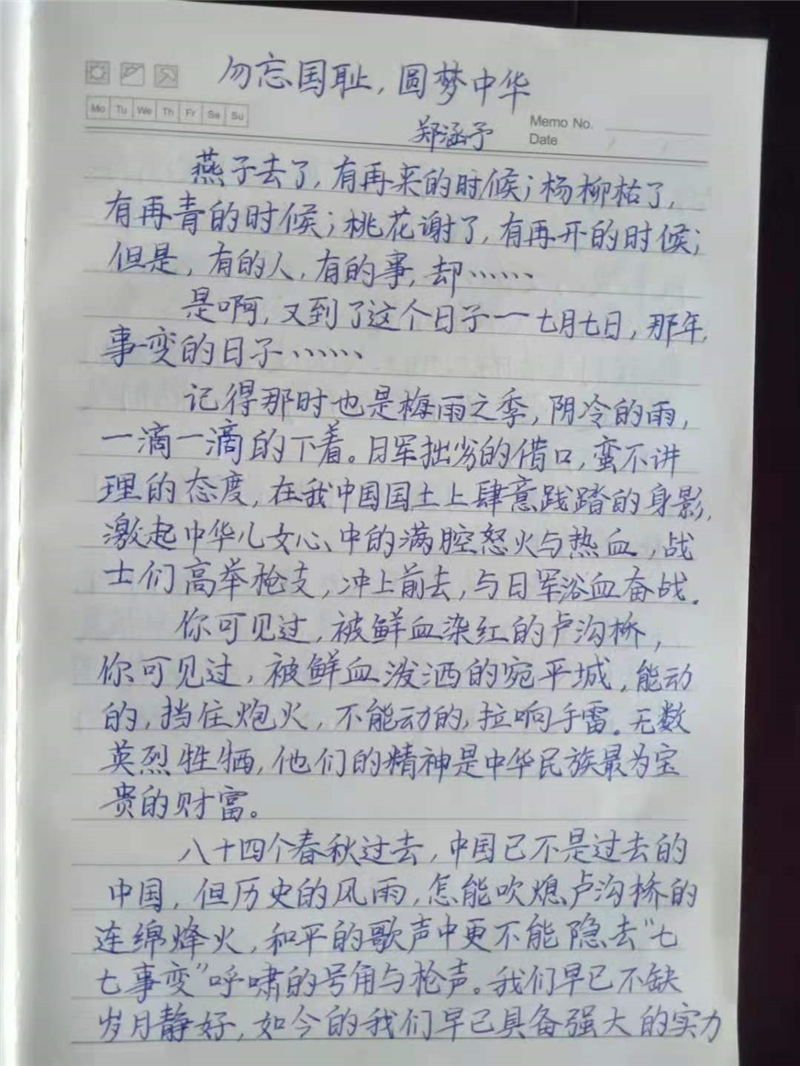 勿忘国耻，圆梦中华
Mo Tu We Th Fr Sa Su
Memo No.
Date
郑涵予
燕子去了，有再来的时候；杨柳枯了，
有再青的时候；桃花谢了，有再开的时候；
但是，有的人，有的事，却……
是啊，又到了这个日子一七月七日，那年，
事变的日子……
记得那时也是梅雨之季，阴冷的雨，
一滴一滴的下着。日军拙劣的借口，蛮不讲
理的态度，在我中国国土上肆意践踏的身影，
激起中华儿女心中的满腔怒火与热血，战
士们高举枪支，冲上前去，与日军浴血奋战。
你可见过，被鲜血染红的卢沟桥，
你可见过，被鲜血泼洒的宛平城，能动
的，挡住炮火，不能动的，拉响手雷。无数
英烈牲牺，他们的精神是中华民族最为宝
贵的财富。
八十四个春秋过去，中国已不是过去的
中国，但历史的风雨，怎能吹熄卢沟桥的
连绵烽火，和平的歌声中更不能隐去“七
七事变”呼啸的号角与枪声。我们早已不缺
岁月静好，如今的我们早已具备强大的实力